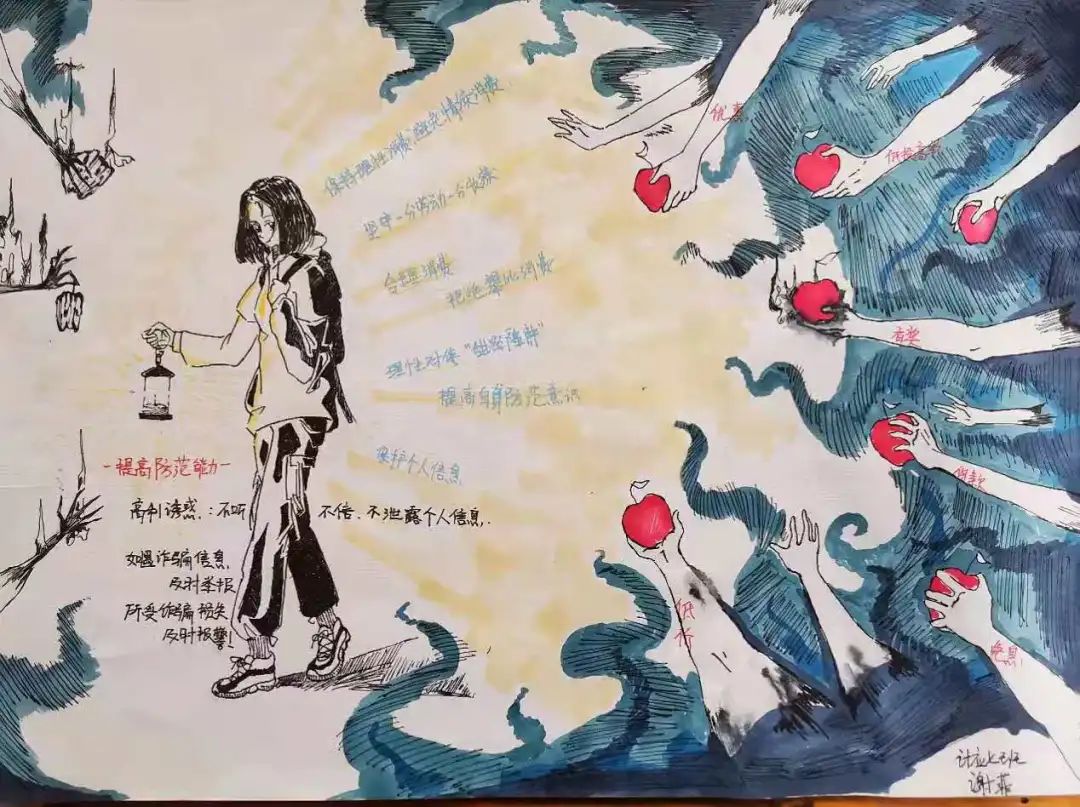 保持理性消费,避免情绪消费.
坚守一分劳动一分收获
合理消费
拒绝攀比消费
理性对待"
提高自身防范意识
保护个人信息
-提高防范能力-
高利诱惑:不听 不信、不泄露个人信息.
如遇诈骗信息
反时举报
所受诈骗损失
反时报警!
优惠
低投高
低价
计应
谢菲